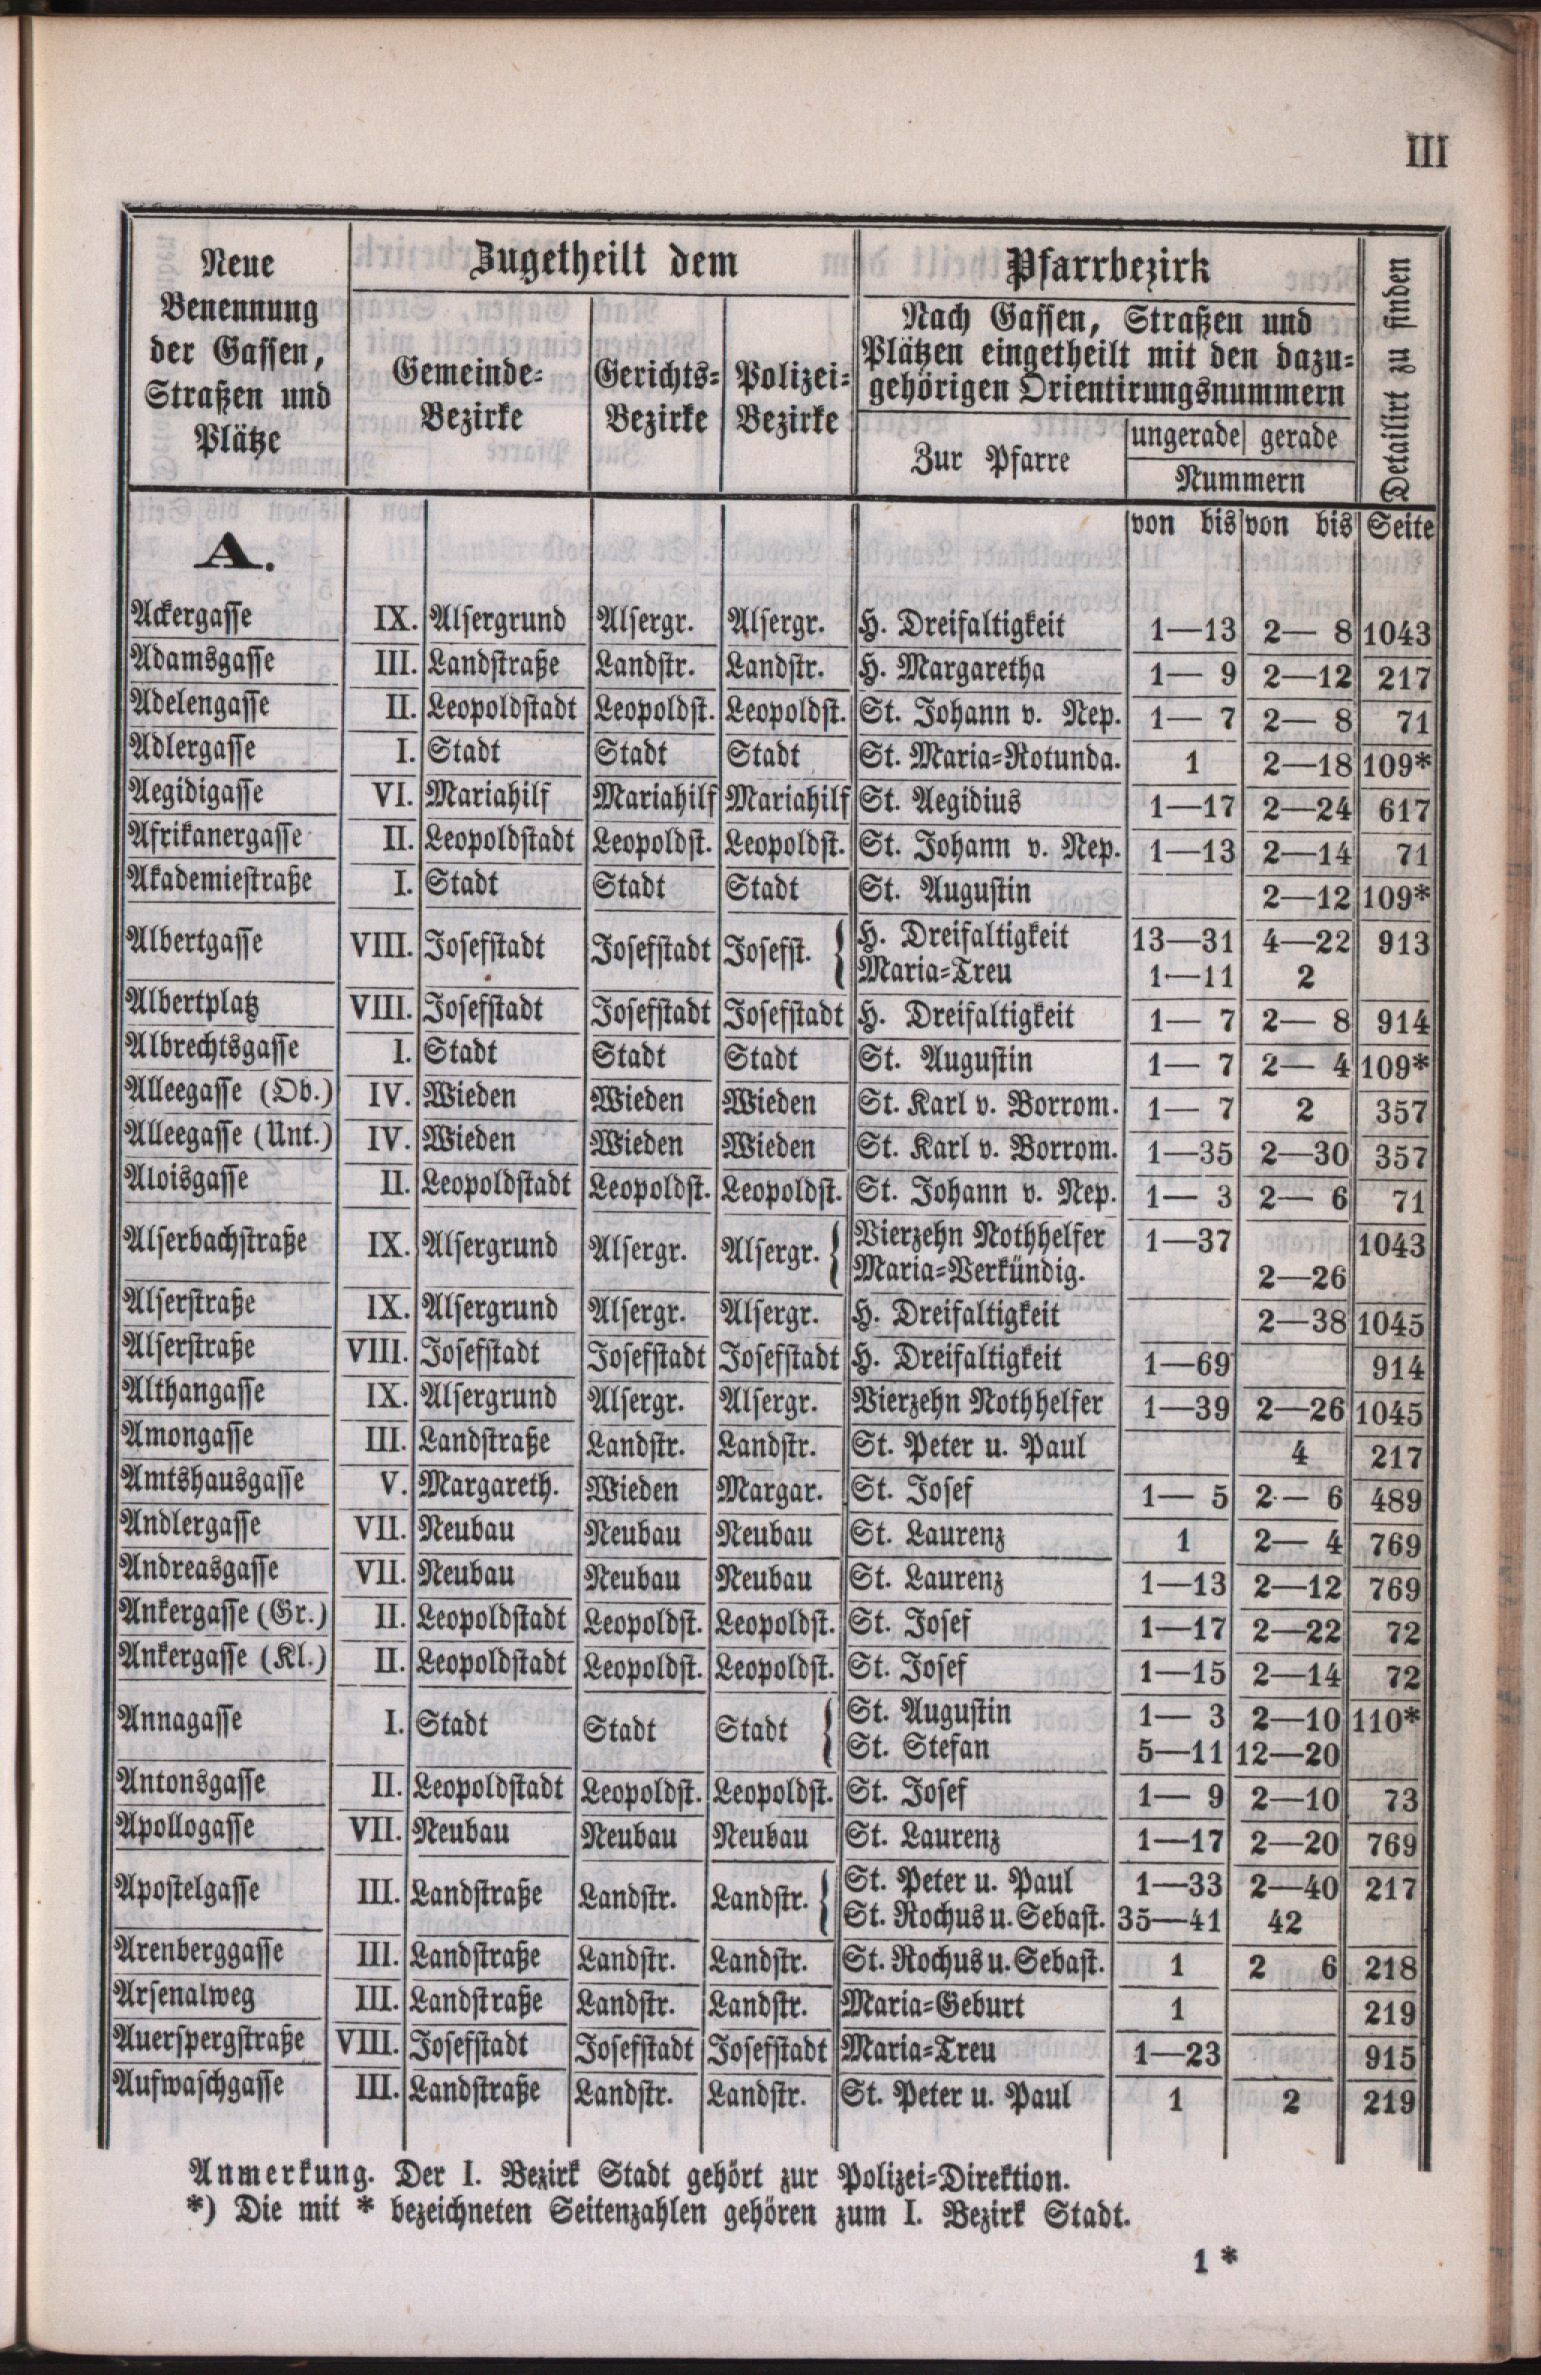 III
Neue Benennung der Gassen, Straßen und Plätze
Zugetheilt dem
Gemeinde-Bezirke
Gerichts-Bezirke
Polizei-Bezirke
Pfarrbezirk
Nach Gassen, Straßen und
Plätzen eingetheilt mit den dazu-
gehörigen Orientirungsnummern
Zur Pfarre
ungerade gerade
Nummern
Detailirt zu finden
von bis von bis Seite
A.
Ackergasse IX. Alsergrund Alsergr. Alsergr. H. Dreifaltigkeit 1—13 2— 8 1043
Adamsgasse III. Landstraße Landstr. Landstr. H. Margaretha 1— 9 2—12 217
Adelengasse II. Leopoldstadt Leopoldst. Leopoldst. St. Johann v. Nep. 1— 7 2— 8 71
Adlergasse I. Stadt Stadt Stadt St. Maria-Rotunda. 1 2—18 109*
Aegidigasse VI. Mariahilf Mariahilf Mariahilf St. Aegidius 1—17 2—24 617
Afrikanergasse II. Leopoldstadt Leopoldst. Leopoldst. St. Johann v. Nep. 1—13 2—14 71
Akademiestraße I. Stadt Stadt Stadt St. Augustin 2—12 109*
Albertgasse VIII. Josefstadt Josefstadt Josefst. { H. Dreifaltigkeit 13—31 4—22 913
Maria-Treu 1—11 2
Albertplatz VIII. Josefstadt Josefstadt Josefstadt H. Dreifaltigkeit 1— 7 2— 8 914
Albrechtsgasse I. Stadt Stadt Stadt St. Augustin 1— 7 2— 4 109*
Alleegasse (Ob.) IV. Wieden Wieden Wieden St. Karl v. Borrom. 1— 7 2 357
Alleegasse (Unt.) IV. Wieden Wieden Wieden St. Karl v. Borrom. 1—35 2—30 357
Aloisgasse II. Leopoldstadt Leopoldst. Leopoldst. St. Johann v. Nep. 1— 3 2— 6 71
Alserbachstraße IX. Alsergrund Alsergr. Alsergr. { Vierzehn Nothhelfer 1—37 1043
Maria-Verkündig. 2—26
Alserstraße IX. Alsergrund Alsergr. Alsergr. H. Dreifaltigkeit 2—38 1045
Alserstraße VIII. Josefstadt Josefstadt Josefstadt H. Dreifaltigkeit 1—69 914
Althangasse IX. Alsergrund Alsergr. Alsergr. Vierzehn Nothhelfer 1—39 2—26 1045
Amongasse III. Landstraße Landstr. Landstr. St. Peter u. Paul 4 217
Amtshausgasse V. Margareth. Wieden Margar. St. Josef 1— 5 2— 6 489
Andlergasse VII. Neubau Neubau Neubau St. Laurenz 1 2— 4 769
Andreasgasse VII. Neubau Neubau Neubau St. Laurenz 1—13 2—12 769
Ankergasse (Gr.) II. Leopoldstadt Leopoldst. Leopoldst. St. Josef 1—17 2—22 72
Ankergasse (Kl.) II. Leopoldstadt Leopoldst. Leopoldst. St. Josef 1—15 2—14 72
Annagasse I. Stadt Stadt Stadt { St. Augustin 1— 3 2—10 110*
St. Stefan 5—11 12—20
Antonsgasse II. Leopoldstadt Leopoldst. Leopoldst. St. Josef 1— 9 2—10 73
Apollogasse VII. Neubau Neubau Neubau St. Laurenz 1—17 2—20 769
Apostelgasse III. Landstraße Landstr. Landstr. { St. Peter u. Paul 1—33 2—40 217
St. Rochus u. Sebast. 35—41 42
Arenberggasse III. Landstraße Landstr. Landstr. St. Rochus u. Sebast. 1 2 6 218
Arsenalweg III. Landstraße Landstr. Landstr. Maria-Geburt 1 219
Auerspergstraße VIII. Josefstadt Josefstadt Josefstadt Maria-Treu 1—23 915
Aufwaschgasse III. Landstraße Landstr. Landstr. St. Peter u. Paul 1 2 219
Anmerkung. Der I. Bezirk Stadt gehört zur Polizei-Direktion.
*) Die mit * bezeichneten Seitenzahlen gehören zum I. Bezirk Stadt.
1 *